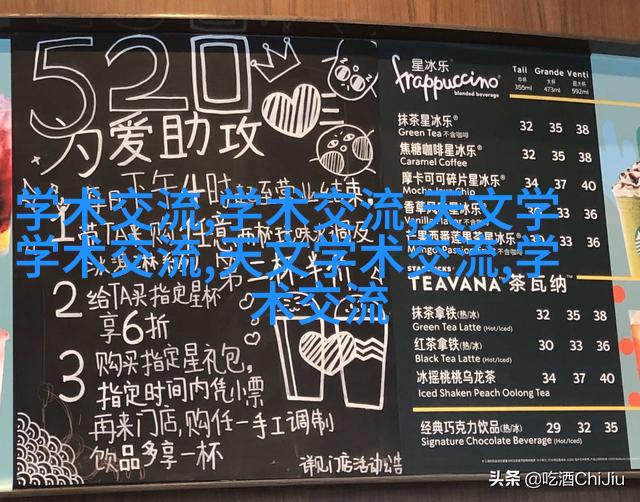 520
为爱助攻
学术交流,学术交流,天文学
学术交流,天文学术交流,学
术交流
2 给TA买指定星杯
享6折
3 购买指定星礼包,
指定时间内凭小票
再来门店,购任一手工调制
饮品多享一杯
详见门店活动公告
星冰乐®
frappuccino®
blended beverage
Tall Grande Venti
中杯 大杯 超大杯
355ml 473ml 592ml
抹茶星冰乐® 32 35 38
Green Tea 不含咖啡
焦糖咖啡星冰乐® 32 35 38
Caramel Coffee
摩卡可可碎片星冰乐® 34 37 40
Mocha Java Chip
33 36
33 36
TEAVANA™茶瓦纳™
抹茶拿铁(热/冰) 32 35 38
Green Tea Latte (Hot/Iced)
红茶拿铁(热/冰) 30 33 36
Black Tea Latte (Hot/Iced)
冰摇桃桃乌龙茶 34 37 40
Iced Shaken Peach Oolong Tea
经典巧克力饮品(热/冰) 29 32 35
Signature Chocolate Beverage (Hot/Iced)
头条 @吃酒ChiJiu